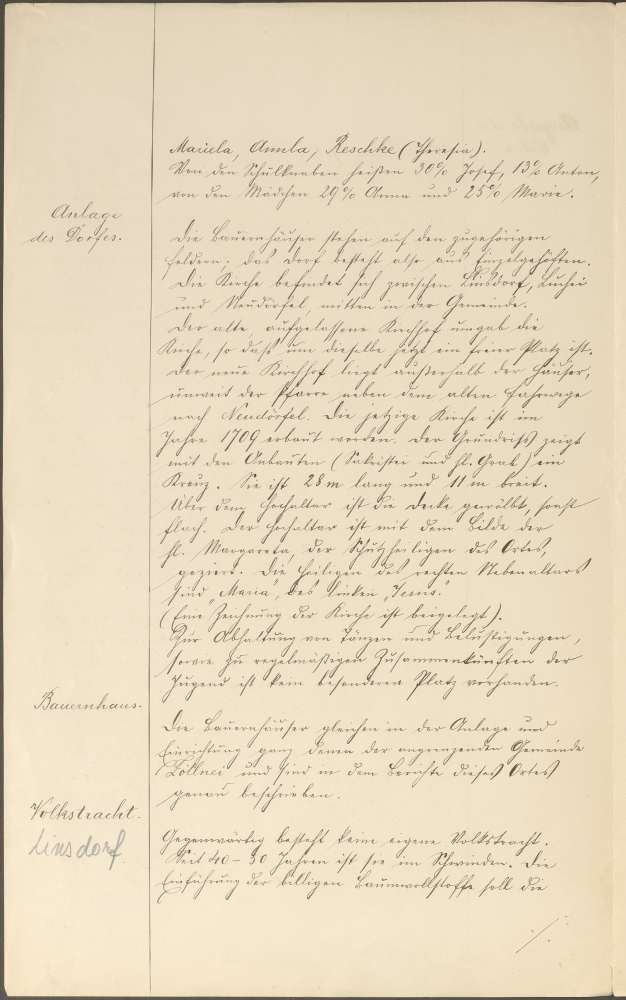 Mariela, Annla, Reschke (Theresia).
Von den Schulknaben heißen 30% Josef, 13% Anton,
von den Mädchen 29% Anna und 25% Marie.
Anlage
des Dorfes.
Die Bauernhäuser stehen auf den zugehörigen
Feldern; das Dorf besteht also aus Einzelgehöften.
Die Kirche befindet sich zwischen Linsdorf,
und Neudörfel, mitten in der Gemeinde.
Der alte, aufgelassene Kirchhof umgab die
Kirche, so daß um dieselbe jetzt ein freier Platz ist.
Der neue Kirchhof liegt außerhalb der Häuser,
unweit der Pfarre neben dem alten Fahrwege
nach Neudörfel. Die jetzige Kirche ist im
Jahre 1709 erbaut worden. Der Grundriß zeigt
mit den Anbauten (Sakristei und hl. Grab) ein
Kreuz. Sie ist 28 m lang und 11 m breit.
Über dem Hochaltar ist die Decke gewölbt, sonst
flach. Der Hochaltar ist mit dem Bilde der
hl. Margareta, der Schutzheiligen des Ortes,
geziert. Die Heiligen des rechten Nebenaltars
sind „Maria", des linken „Jesus".
(Eine Zeichnung der Kirche ist beigelegt).
Zur Abhaltung von Tänzen und Belustigungen,
sowie zu regelmäßigen Zusammenkünften der
Jugend ist kein besonderer Platz vorhanden.
Bauernhaus.
Die Bauernhäuser gleichen in der Anlage und
Einrichtung ganz denen der angrenzenden Gemeinde
und sind in dem Berichte dieses Ortes
genau beschrieben.
Volkstracht.
Linsdorf
Gegenwärtig besteht keine eigene Volkstracht.
Seit 40-30 Jahren ist sie im Schwinden. Die
Einführung der billigen Baumwollstoffe soll die
./.